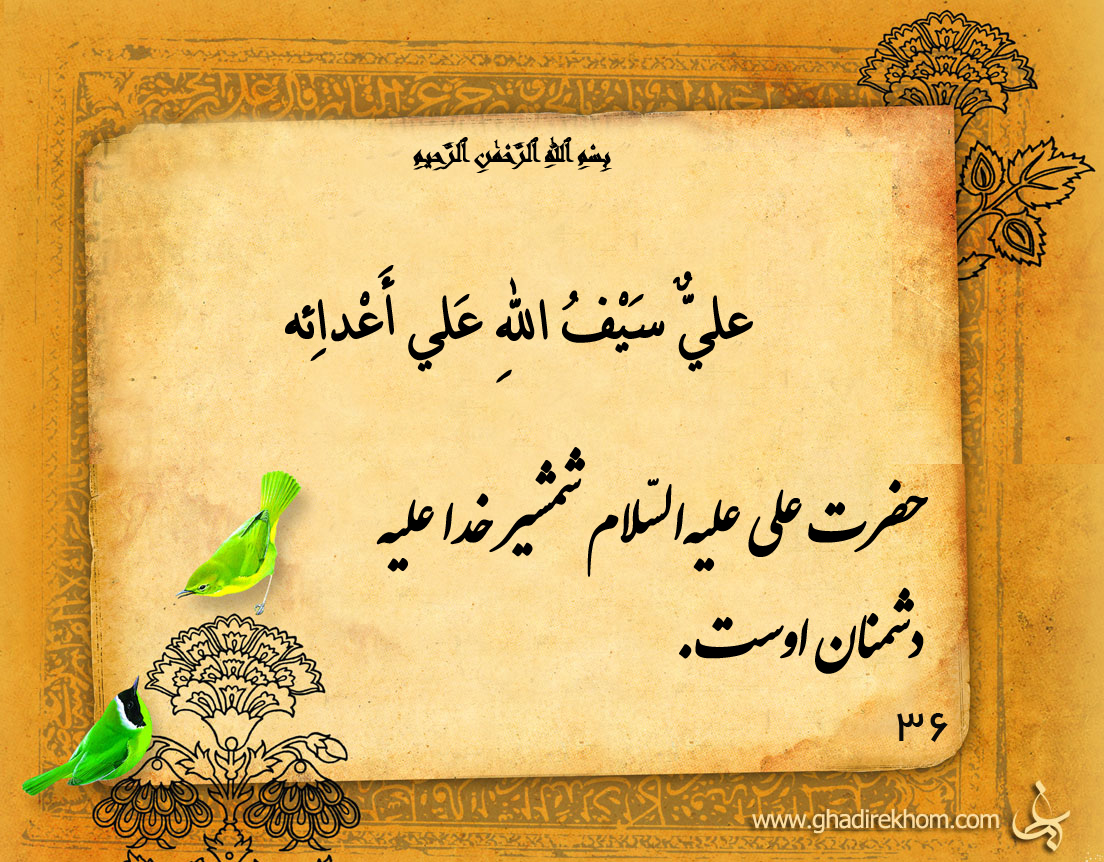 بِسْمِ ٱللَّهِ ٱلرَّحْمَٰنِ ٱلرَّحِيمِ
عليٌّ سَيْفُ اللهِ عَلي أَعْدائِه
حضرت علی علیه‌السّلام شمشیر خدا علیه
دشمنان اوست.
۳۶
www.ghadirekhom.com